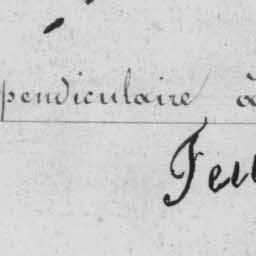 pendiculaire à
Feu